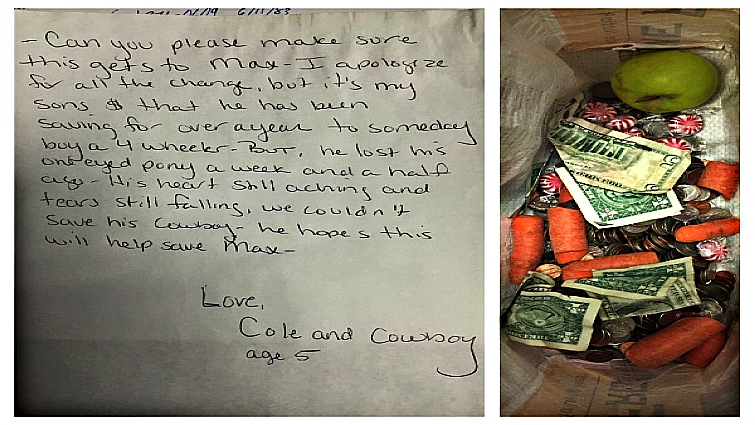 6/11/83
- Can you please make sure
this gets to Max - I apologize
for all the change, but it's my
sons $ that he has been
saving for over a year to someday
buy a 4 wheeler - BUT, he lost his
one eyed pony a week and a half
ago - His heart still aching and
tears still falling, we couldn't
save his Cowboy - he hopes this
will help save Max -
Love,
Cole and Cowboy
age 5